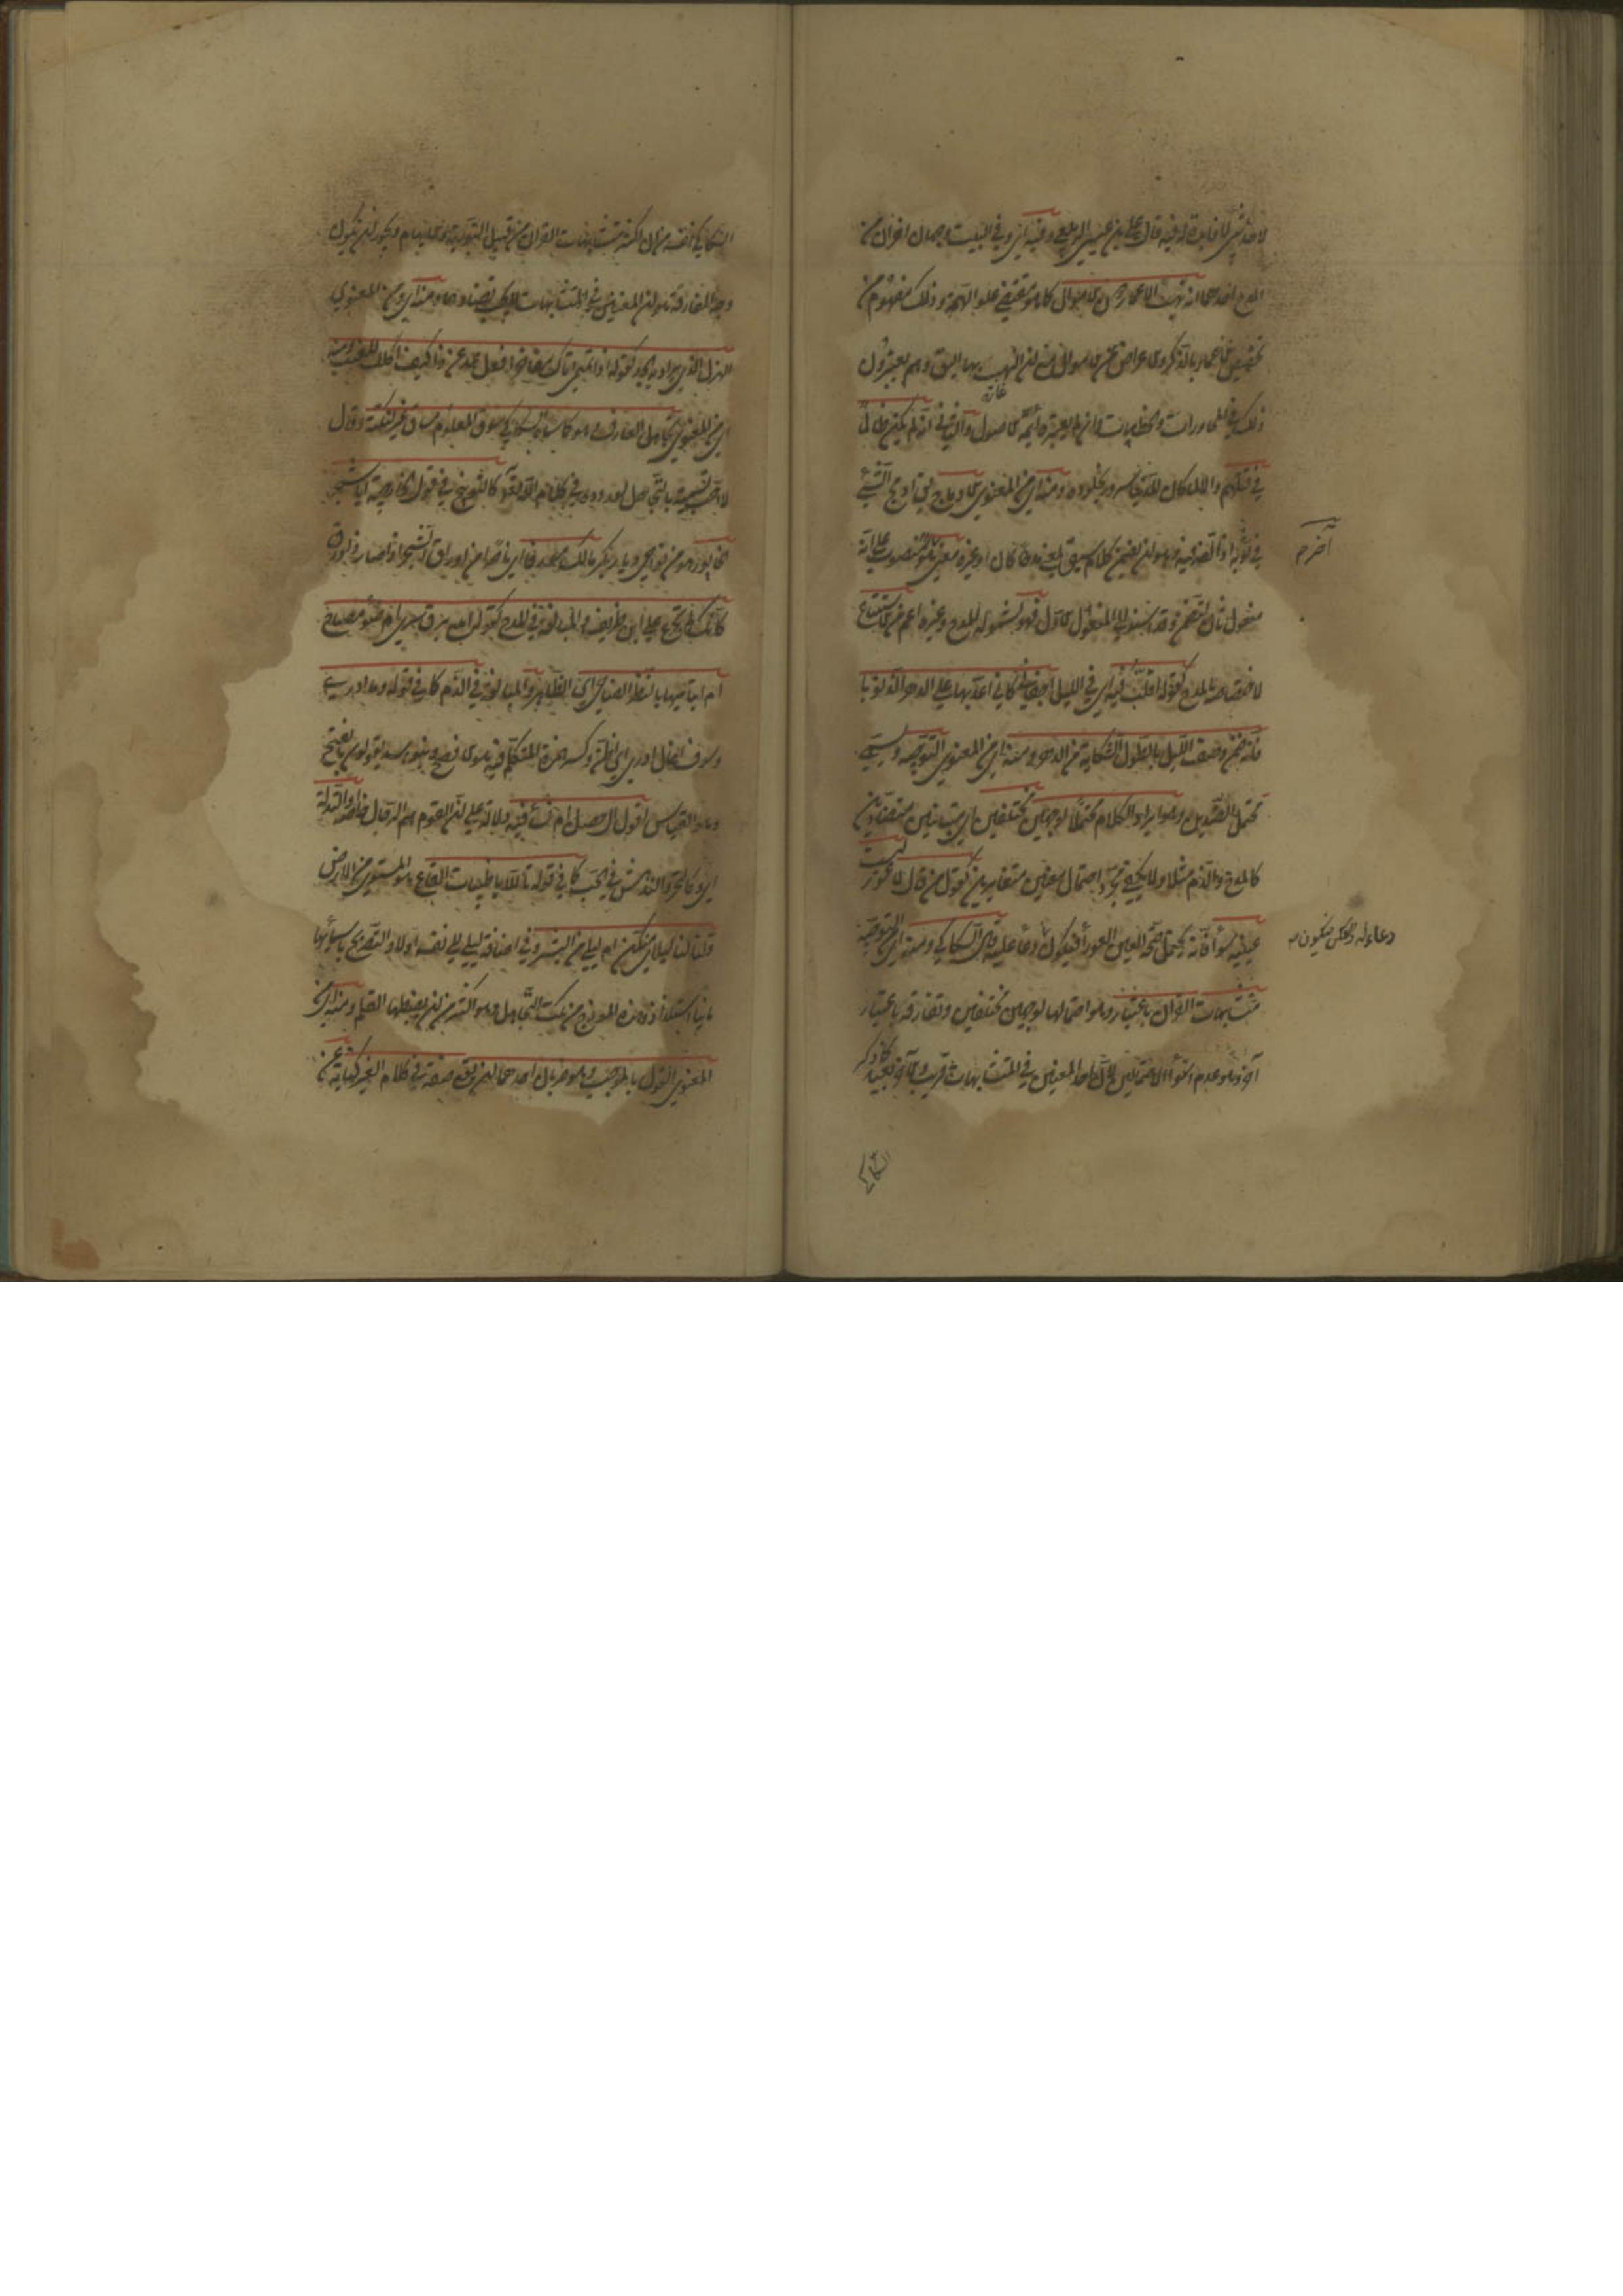 لا حد شيء لا فائدة فيه قال علي بن عيسى الربعي وفيه اي وفي البيت وجهان اخران من
المدح احدهما انه نهب الاعمار دون الاموال كما هو مقتضى علو الهمة وذلك مفهوم من
تخصيص الاعمار بالذكر والاعراض عن الاموال مع ان النهب بها اليق وهم يعتبرون
ذلك في المحاورات والخطابيات وان لم يعتبره ائمة الاصول والثاني انه لم يكن ظالما
في قتلهم والا لما كان للدنيا سرور بخلوده ومنه اي من المعنوي الادماج يق ادمج الشيء
في ثوبه اذا لفه فيه وهو ان يضمن كلام سيق لمعنى مدحا كان او غيره معنى آخر منصوب على انه
مفعول ثان ليضمن وقد اسند الى المفعول الاول فهو لشموله للمدح وغيره اعم من الاستتباع
لاختصاصه بالمدح كقوله اقلب فيه اي في الليل اجفاني كاني اعد بها على الدهر الذنوبا
فانه ضمن وصف الليل بالطول الشكاية من الدهر ومنه اي من المعنوي التوجيه ويسمى
محتمل الضدين وهو ايراد الكلام محتملا لوجهين مختلفين اي متباينين متضادين
كالمدح والذم مثلا ولا يكفي مجرد احتمال معنيين متغايرين كقول من قال لاعور ليت
عينيه سواء فانه يحتمل صحة العين العوراء فيكون دعاء عليه قال السكاكي ومنه اي من التوجيه
متشابهات القران باعتبار وهو احتمالها لوجهين مختلفين وتفارقه باعتبار
آخر وهو عدم استواء الاحتمالين لان احد المعنيين في المتشابهات قريب والاخر بعيد كما ذكر
آخر م
دعاء له والعكس فيكون م
السكاكي
السكاكي نفسه من ان اكثر متشابهات القران من قبيل التورية والايهام ويجوز ان يكون
وجه المفارقة هو ان المعنيين في المتشابهات لا يجب تضادهما ومنه اي ومن المعنوي
الهزل الذي يراد به الجد كقوله اذا ما تميمي اتاك مفاخرا فقل عد عن ذا كيف اكلك للضب ومنه
اي من المعنوي تجاهل العارف وهو كما سماه السكاكي سوق المعلوم مساق غيره لنكتة وقال
لا احب تسميته بالتجاهل لوروده في كلام الله تعالى كالتوبيخ في قول الخارجية ايا شجر
الخابور هو من نواحي ديار بكر مالك مورقا اي ناضرا من اورق الشجر اذا صار ذا ورق
كانك لم تجزع على ابن طريف والمبالغة في المدح كقوله المع برق سرى ام ضوء مصباح
ام ابتسامتها بالمنظر الضاحي اي الظاهر والمبالغة في الذم كما في قوله وما ادري
وسوف اخال ادري اي اظن وكسر همزة المتكلم فيه هو الافصح وبنو اسد يقولون بالفتح
وهو القياس اقوم ال حصن ام نساء فيه دلالة على ان القوم هم الرجال خاصة والتدله
اي وكالتحير والتدهش في الحب كما في قوله تالله يا ظبيات القاع هو المستوي من الارض
قلن لنا ليلاي منكن ام ليلى من البشر وفي اضافة ليلى الى نفسه اولا والتصريح باسمها
ثانيا استلذاذ وهذه انموذج من نكت التجاهل وهو اكثر من ان يضبطها القلم ومنه اي من
المعنوي القول بالموجب وهو ضربان احدهما ان يقع صفة في كلام الغير كناية عن